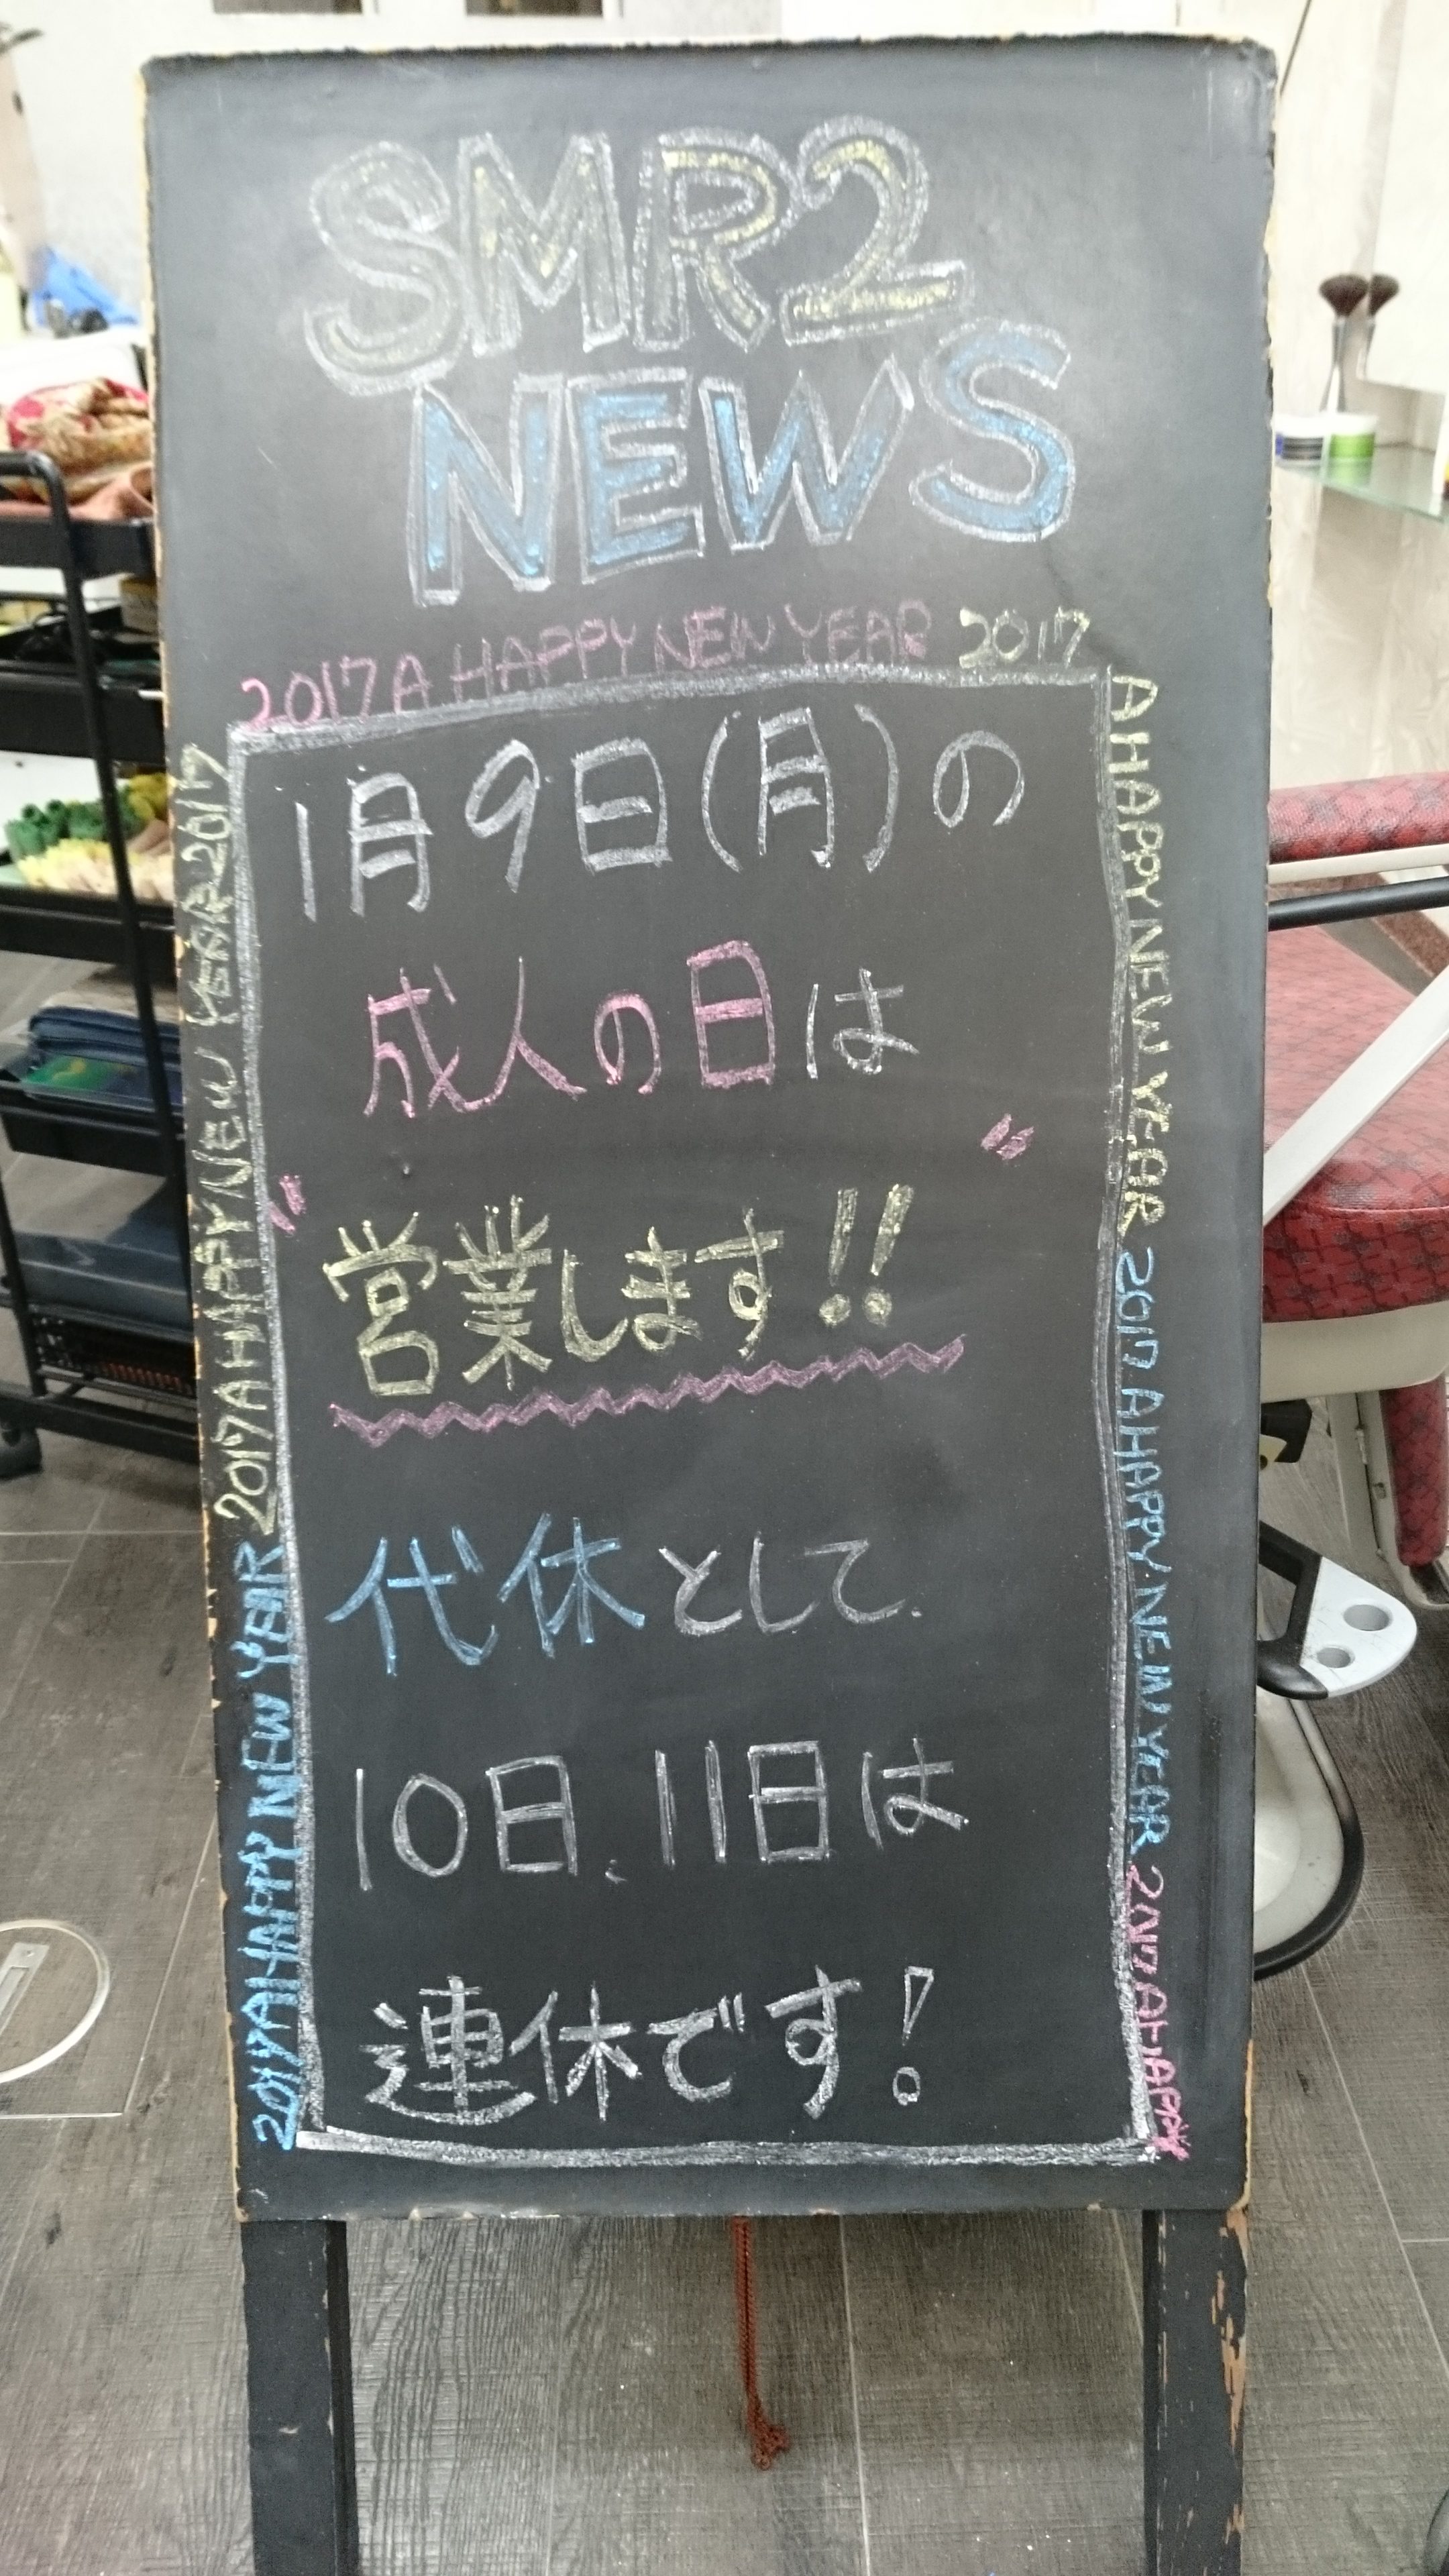 SMR2
NEWS
2017 A HAPPY NEW YEAR 2017
A HAPPY NEW YEAR 2017 A HAPPY NEW YEAR 2017 A HAPPY
2017 A HAPPY NEW YEAR 2017 A HAPPY NEW YEAR 2017
1月9日(月)の
成人の日は
"営業します!!"
代休として.
10日、11日は
連休です!